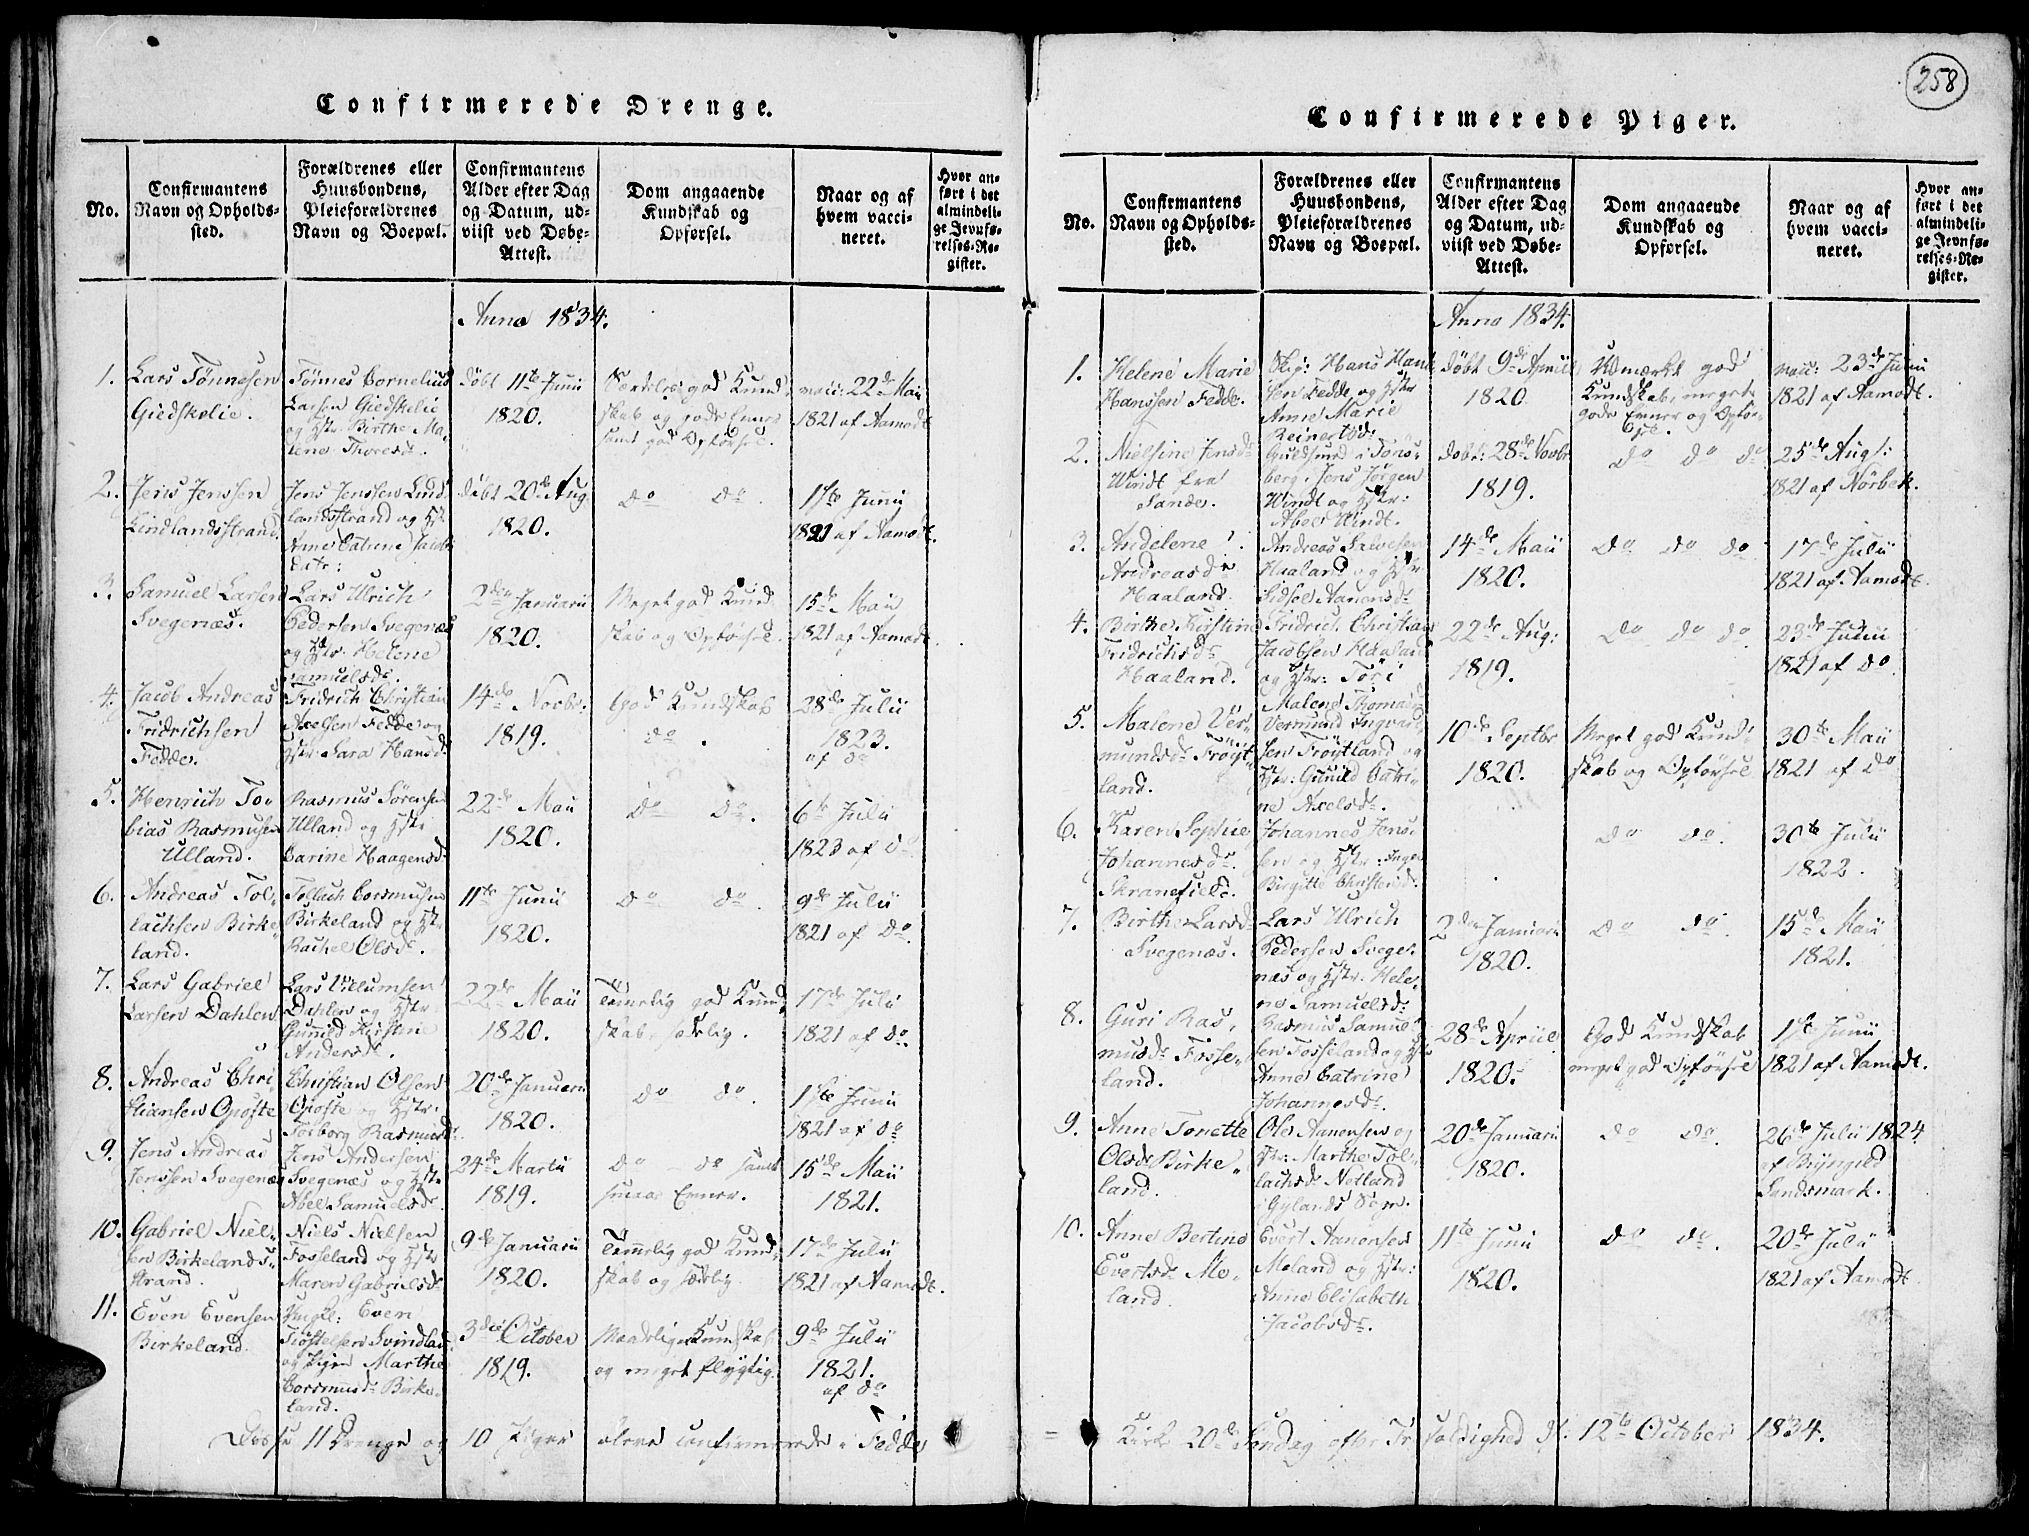 258
Confirmerede Drenge.
No.
Confirmantens
Navn og Opholds-
sted.
Forældrenes eller
Huusbondens,
Pleieforældrenes
Navn og Boepæl.
Confirmantens
Alder efter Dag
og Datum, ud-
viist ved Døbe-
Attest.
Dom angaaende
Kundskab og
Opførsel.
Naar og af
hvem vacci-
neret.
Hvor an-
ført i det
almindeli-
ge Jevnfø-
relses-Re-
gister.
Anno 1834.
1.
Lars Tönnesen
Giedskelie.
Tönnes Cornelius
Larsen Giedskelie
og Hstr. Birthe Ma-
lene Thoresdr.
döbt 11te Junii
1820.
Særdeles god Kund-
skab og gode Evner
samt god Opförsel.
vacc: 22de Maii
1821 af Aamodt
2.
Jens Jenssen
Lindlandsstrand
Jens Jenssen Lind-
landsstrand og Hstr
Anne Catrine Jacobs
datr:
döbt 20de Aug.
1820.
do do.
1ste Junii
1821 af Aamodt.
3.
Samuel Larsen
Svegenæs.
Lars Ulrich
Pedersen Svegenæs
og Hstr. Helene
Samuelsdr.
2den Januarii
1820.
Meget god Kund-
skab og Opförsel.
15de Maii
1821 af Aamodt.
4.
Jacob Andreas
Fridrichsen
Fedde.
Fridrich Christian
Axelsen Fedde og
Hstr. Sara Hansdr.
14de Novbr:
1819.
God Kundskab
do.
28de Julii
1823.
af do
5.
Henrich To-
bias Rasmusen
Ulland.
Rasmus Sörensen
Ulland og Hstr
Carine Haagensdr.
22de Maii
1820.
do do.
6te Julii
1823 af do
6.
Andreas Tol-
lachsen Birke-
land.
Tollach Corsmusen
Birkeland og Hstr
Rachel Olsdr.
11te Junii
1820.
do do.
9de Julii
1821 af do.
7.
Lars Gabriel
Larsen Dahlen
Lars Villumsen
Dahlen og Hstr
Gunild Kirstine
Andersdr.
22de Maii
1820.
Temelig god Kund-
skab, sædelig.
17de Julii
1821 af do.
8.
Andreas Chri-
stiansen Opofte
Christian Olsen
Opofte og Hstr.
Torborg Rasmusdr.
20de Januarii
1820.
do do.
1ste Junii
1821 af do
9.
Jens Andreas
Jenssen Svegenæs
Jens Andersen
Svegenæs og Hstr
Abel Samuelsdr.
24de Martii
1819.
do do samt
smaae Evner.
15de Maii
1821.
10.
Gabriel Niel-
sen Birkelands-
strand.
Niels Nielsen
Fosseland og Hstr
Maren Gabrielsdr.
9de Januarii
1820.
Temelig god Kund-
skab og sædelig.
17de Julii
1821 af Aamodt.
11.
Even Evensen
Birkeland.
Ungk: Even
Tiöstelsen Svindland
og Pigen Marthe
Corsmusdr. Birke-
land.
3die October
1819.
Maadelig Kundskab
og meget flygtig.
9de Julii
1821.
af do
Disse 11 Drenge og 10 Piger bleve confirmerede i Fedde
Confirmerede Piger.
No.
Confirmantens
Navn og Opholds-
sted.
Forældrenes eller
Huusbondens,
Pleieforældrenes
Navn og Boepæl.
Confirmantens
Alder efter Dag
og Datum, ud-
viist ved Døbe-
Attest.
Dom angaaende
Kundskab og
Opførsel.
Naar og af
hvem vacci-
neret.
Hvor an-
ført i det
almindeli-
ge Jevnfø-
relses-Re-
gister.
Anno 1834.
1.
Helene Marie
Hanssen Fedde.
Skip: Hans Han-
sen Fedde og Hstr
Anne Marie
Reinertsdr:
döbt 9de April
1820
Udmærket god
Kundskab, meget
gode Evner og Opför-
sel.
vacc: 23de Junii
1821 af Aamodt.
2.
Nielsine Jensdr
Windt fra
Sande.
Guldsmed i Töns-
berg, Jens Jörgen
Windt og Hstr:
Abel Windt.
döbt: 28de Novbr
1819.
do do do
25de Aug:
1821 af Nörbek.
3.
Andelene
Andreasdr
Haaland.
Andreas Salvesen
Haaland og Hstr
Sidsel Aanensdr.
14de Maii
1820.
do do do
17de Julii
1821 af Aamodt.
4.
Birthe Kirstine
Fridrichsdr
Haaland.
Fridrich Christian
Jacobsen Haaland
og Hstr: Töri
Malene Thomasdr
22de Aug:
1819.
do do do.
23de Junii
1821 af do.
5.
Malene Ver-
mundsdr Fröyt-
land.
Vermund Ingvard-
sen Fröytland og
Hstr: Gunild Catri-
ne Axelsdr.
10de Septbr
1820.
Meget god Kund-
skab og Opförsel
30te Maii
1821 af do
6.
Karen Sophie
Johannesdr.
Skranefield.
Johannes Jens-
sen og Hstr: Inger
Birgitte Christensdr.
do do.
30te Julii
1822.
7.
Birthe Larsdr
Svegenæs.
Lars Ulrich
Pedersen Svege-
næs og Hstr. Hele-
ne Samuelsdr.
2den Januarii
1820.
do do.
15de Maii
1821.
8.
Guri Ras-
musdr Fosse-
land.
Rasmus Samuel-
sen Fosseland og Hstr
Anne Catrine
Johannesdr.
28de Apriil
1820.
God Kundskab
meget god Opförsel
1ste Junii
1821 af Aamodt.
9.
Anne Tonette
Olsdr Birke-
land.
Ole Aanensen og
Hstr: Marthe Tol-
lachsdr Netland
i Gylands Sogn.
20de Januarii
1820.
do do.
26de Julii 1824
af Bryngild
Sandsmark.
10.
Anne Bertine
Evertsdr Mo-
land.
Evert Aanensen
Moland og Hstr:
Anne Elisabeth
Jacobsdr.
11te Junii
1820.
do do.
20de Julii
1821 af Aamodt
Kirke 20de Söndag efter Trefoldighed d. 12te October 1834.